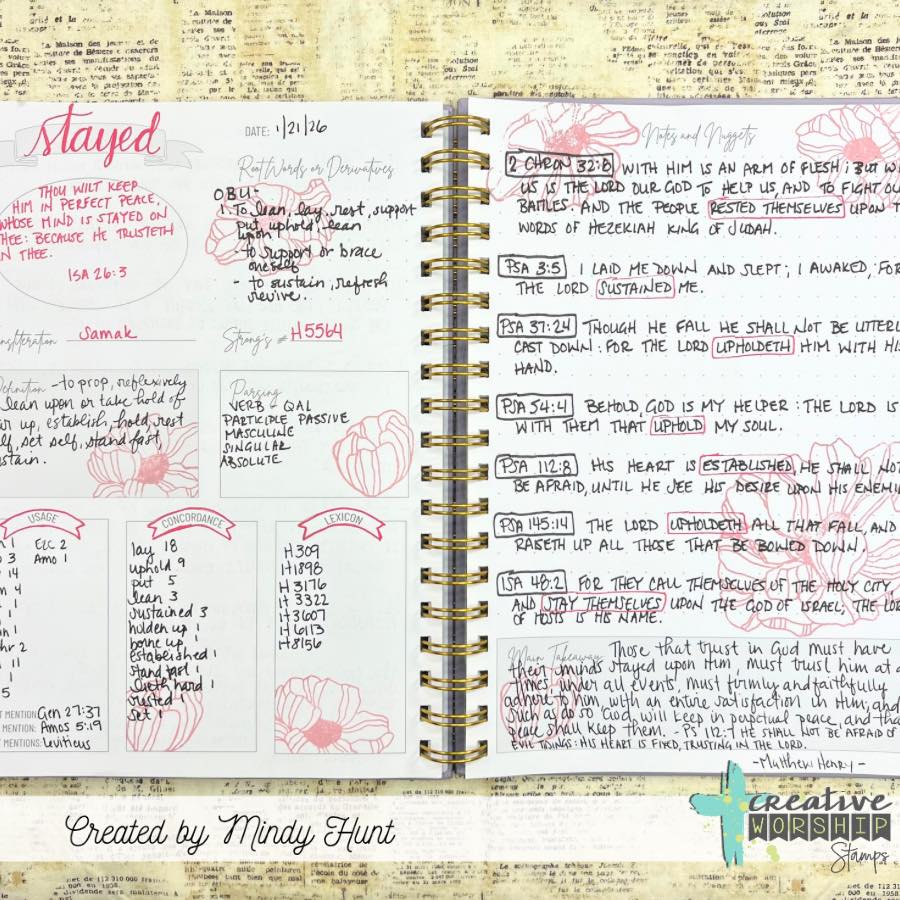 stayed
DATE: 1/21/26
THOU WILT KEEP
HIM IN PERFECT PEACE,
WHOSE MIND IS STAYED ON
THEE: BECAUSE HE TRUSTETH
IN THEE.
ISA 26:3
Root Words or Derivatives
OBU-
1. To lean, lay, rest, support
put, uphold, lean
upon
- to support or brace
oneself
- to sustain, refresh
revive.
Transliteration Samak
Strong's # H5564
Definition - to prop, reflexively
lean upon or take hold of
up, establish, hold, rest
self, set self, stand fast,
sustain.
Parsing
VERB - QAL
PARTICIPLE PASSIVE
MASCULINE
SINGULAR
ABSOLUTE
USAGE
1 EZE 2
3 Amo 1
14
4
1
1
1
2
11
5
MENTION: Gen 27:37
MENTION: Amos 5:19
MENTIONS: Leviticus
CONCORDANCE
lay 18
uphold 9
put 5
lean 3
sustained 3
holden up 1
borne up 1
established 1
stand fast 1
lieth hard 1
rested 1
set 1
LEXICON
H309
H1898
H3176
H3322
H3607
H6113
H8156
Notes and Nuggets
2 CHRON 32:8 WITH HIM IS AN ARM OF FLESH; BUT WI
US IS THE LORD OUR GOD TO HELP US, AND TO FIGHT OU
BATTLES. AND THE PEOPLE RESTED THEMSELVES UPON T
WORDS OF HEZEKIAH KING OF JUDAH.
PSA 3:5 I LAID ME DOWN AND SLEPT; I AWAKED; FOR
THE LORD SUSTAINED ME.
PSA 37:24 THOUGH HE FALL HE SHALL NOT BE UTTERL
CAST DOWN: FOR THE LORD UPHOLDETH HIM WITH HIS
HAND.
PSA 54:4 BEHOLD, GOD IS MY HELPER: THE LORD IS
WITH THEM THAT UPHOLD MY SOUL.
PSA 112:8 HIS HEART IS ESTABLISHED, HE SHALL NOT
BE AFRAID, UNTIL HE SEE HIS DESIRE UPON HIS ENEMI
PSA 145:14 THE LORD UPHOLDETH ALL THAT FALL, AND
RAISETH UP ALL THOSE THAT BE BOWED DOWN.
ISA 48:2 FOR THEY CALL THEMSELVES OF THE HOLY CITY,
AND STAY THEMSELVES UPON THE GOD OF ISRAEL; THE LOR
OF HOSTS IS HIS NAME.
Main Takeaway Those that trust in God must have
their minds stayed upon Him, must trust him at a
times, under all events, must firmly and faithfully
adhere to him, with an entire satisfaction in Him; and
such as do so God will keep in perpetual peace, and tha
peace shall keep them. - PS 112:7 HE SHALL NOT BE AFRAID OF
EVIL TIDINGS: HIS HEART IS FIXED, TRUSTING IN THE LORD.
-Matthew Henry-
Created by Mindy Hunt
creative
WORSHIP
Stamps